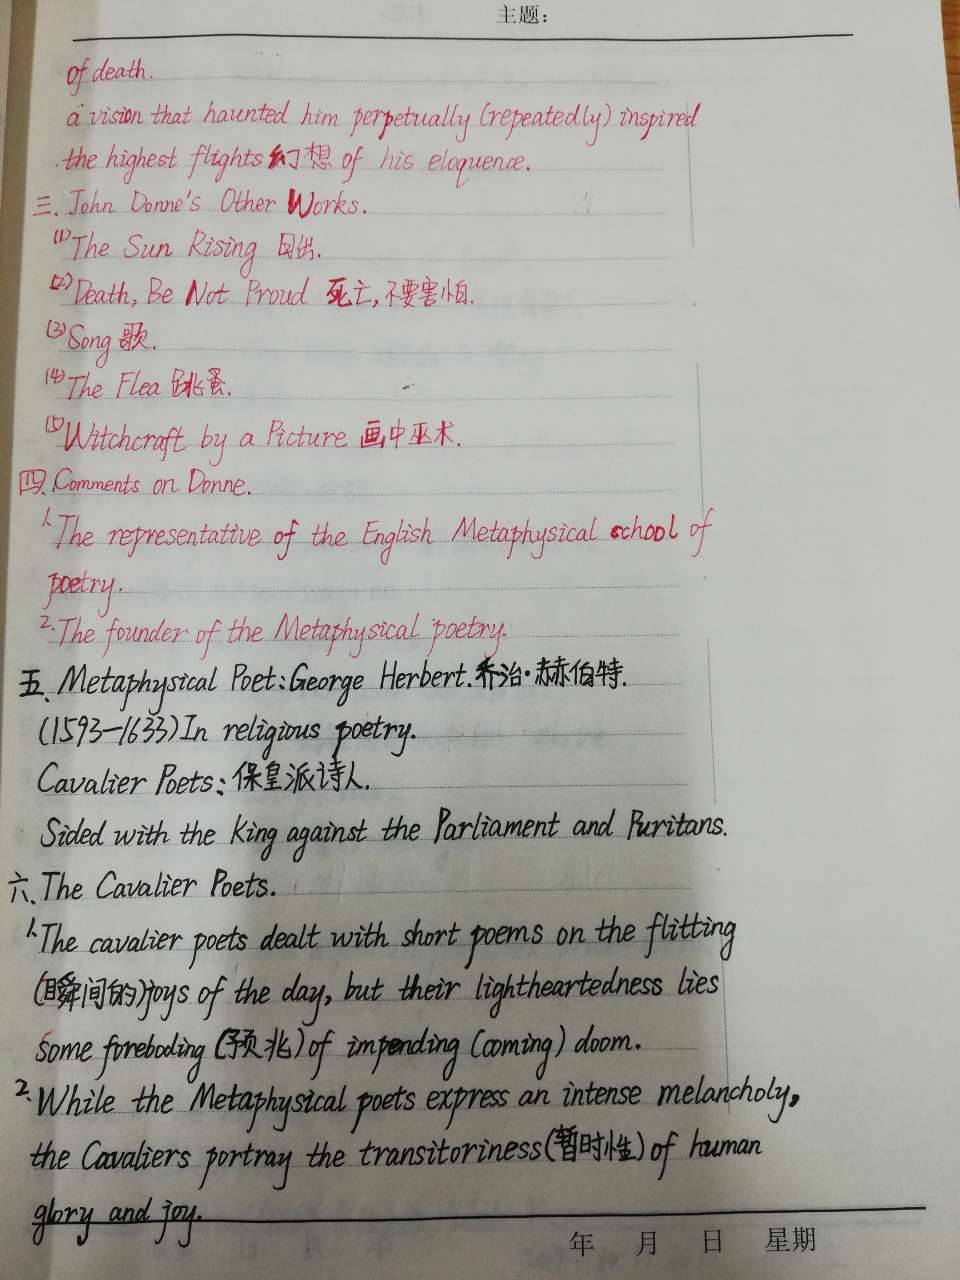 主题：
of death.
a vision that haunted him perpetually (repeatedly) inspired
the highest flights 幻想 of his eloquence.
三. John Donne's Other Works.
(1) The Sun Rising 日出.
(2) Death, Be Not Proud 死亡,不要害怕.
(3) Song 歌.
(4) The Flea 跳蚤.
(5) Witchcraft by a Picture 画中巫术.
四. Comments on Donne.
1. The representative of the English Metaphysical school of
poetry.
2. The founder of the Metaphysical poetry.
五. Metaphysical Poet: George Herbert. 乔治·赫伯特.
(1593-1633) In religious poetry.
Cavalier Poets: 保皇派诗人.
Sided with the King against the Parliament and Puritans.
六. The Cavalier Poets.
1. The cavalier poets dealt with short poems on the flitting
(瞬间的) joys of the day, but their lightheartedness lies
some foreboding (预兆) of impending (coming) doom.
2. While the Metaphysical poets express an intense melancholy,
the Cavaliers portray the transitoriness (暂时性) of human
glory and joy.
年 月 日 星期